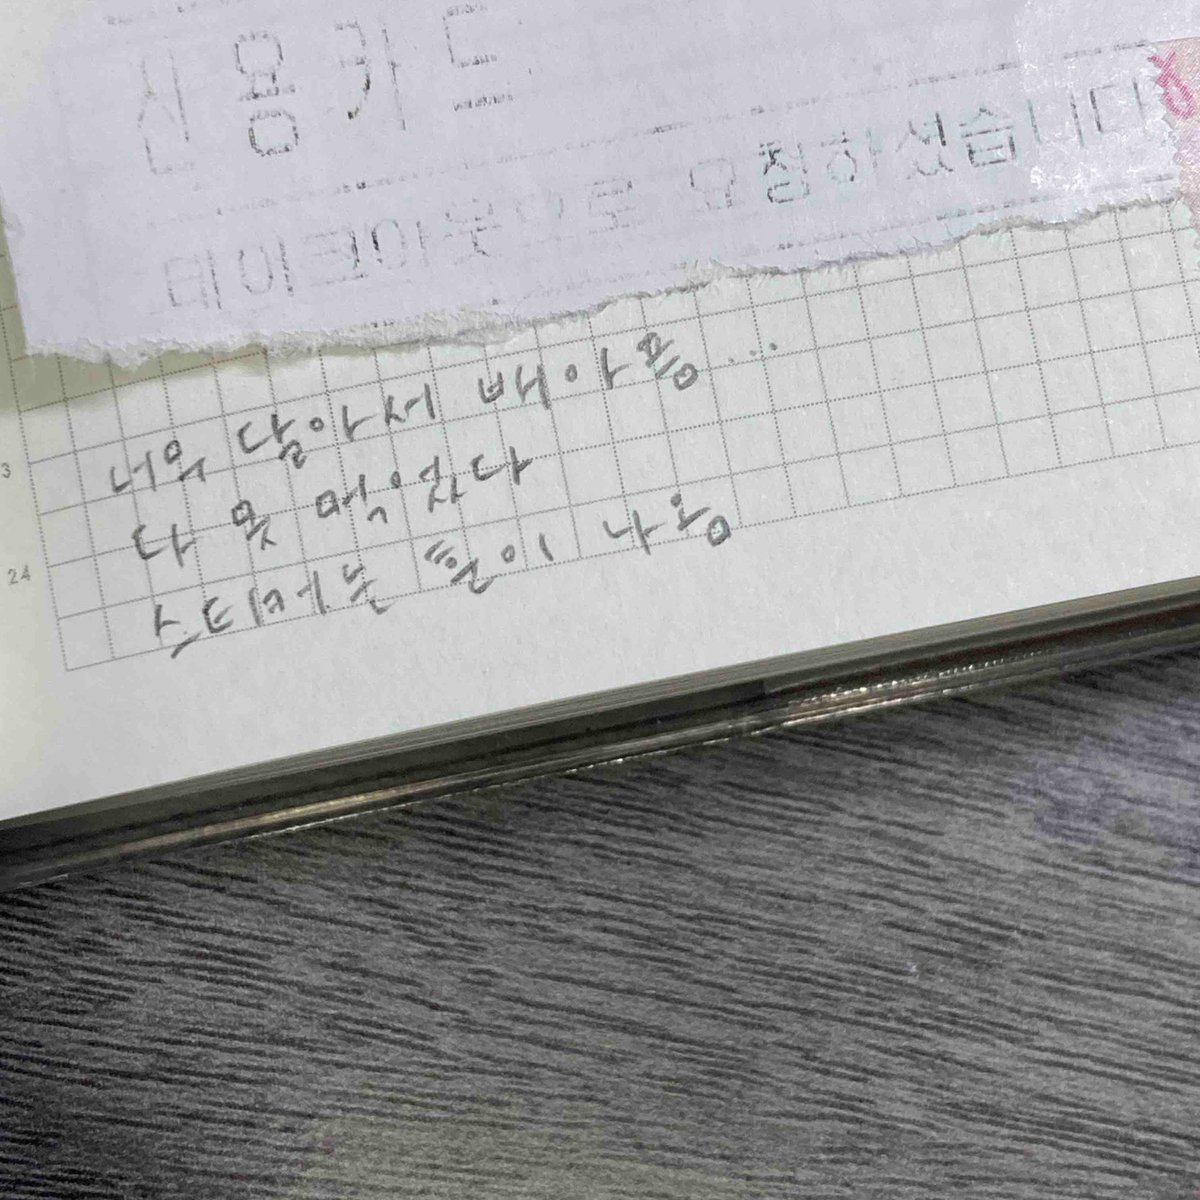 신용카드
테이크아웃으로 요청하셨습니다
3
너무 달아서 배아픔...
다 못 먹었다
24
스티커는 틀이 나옹